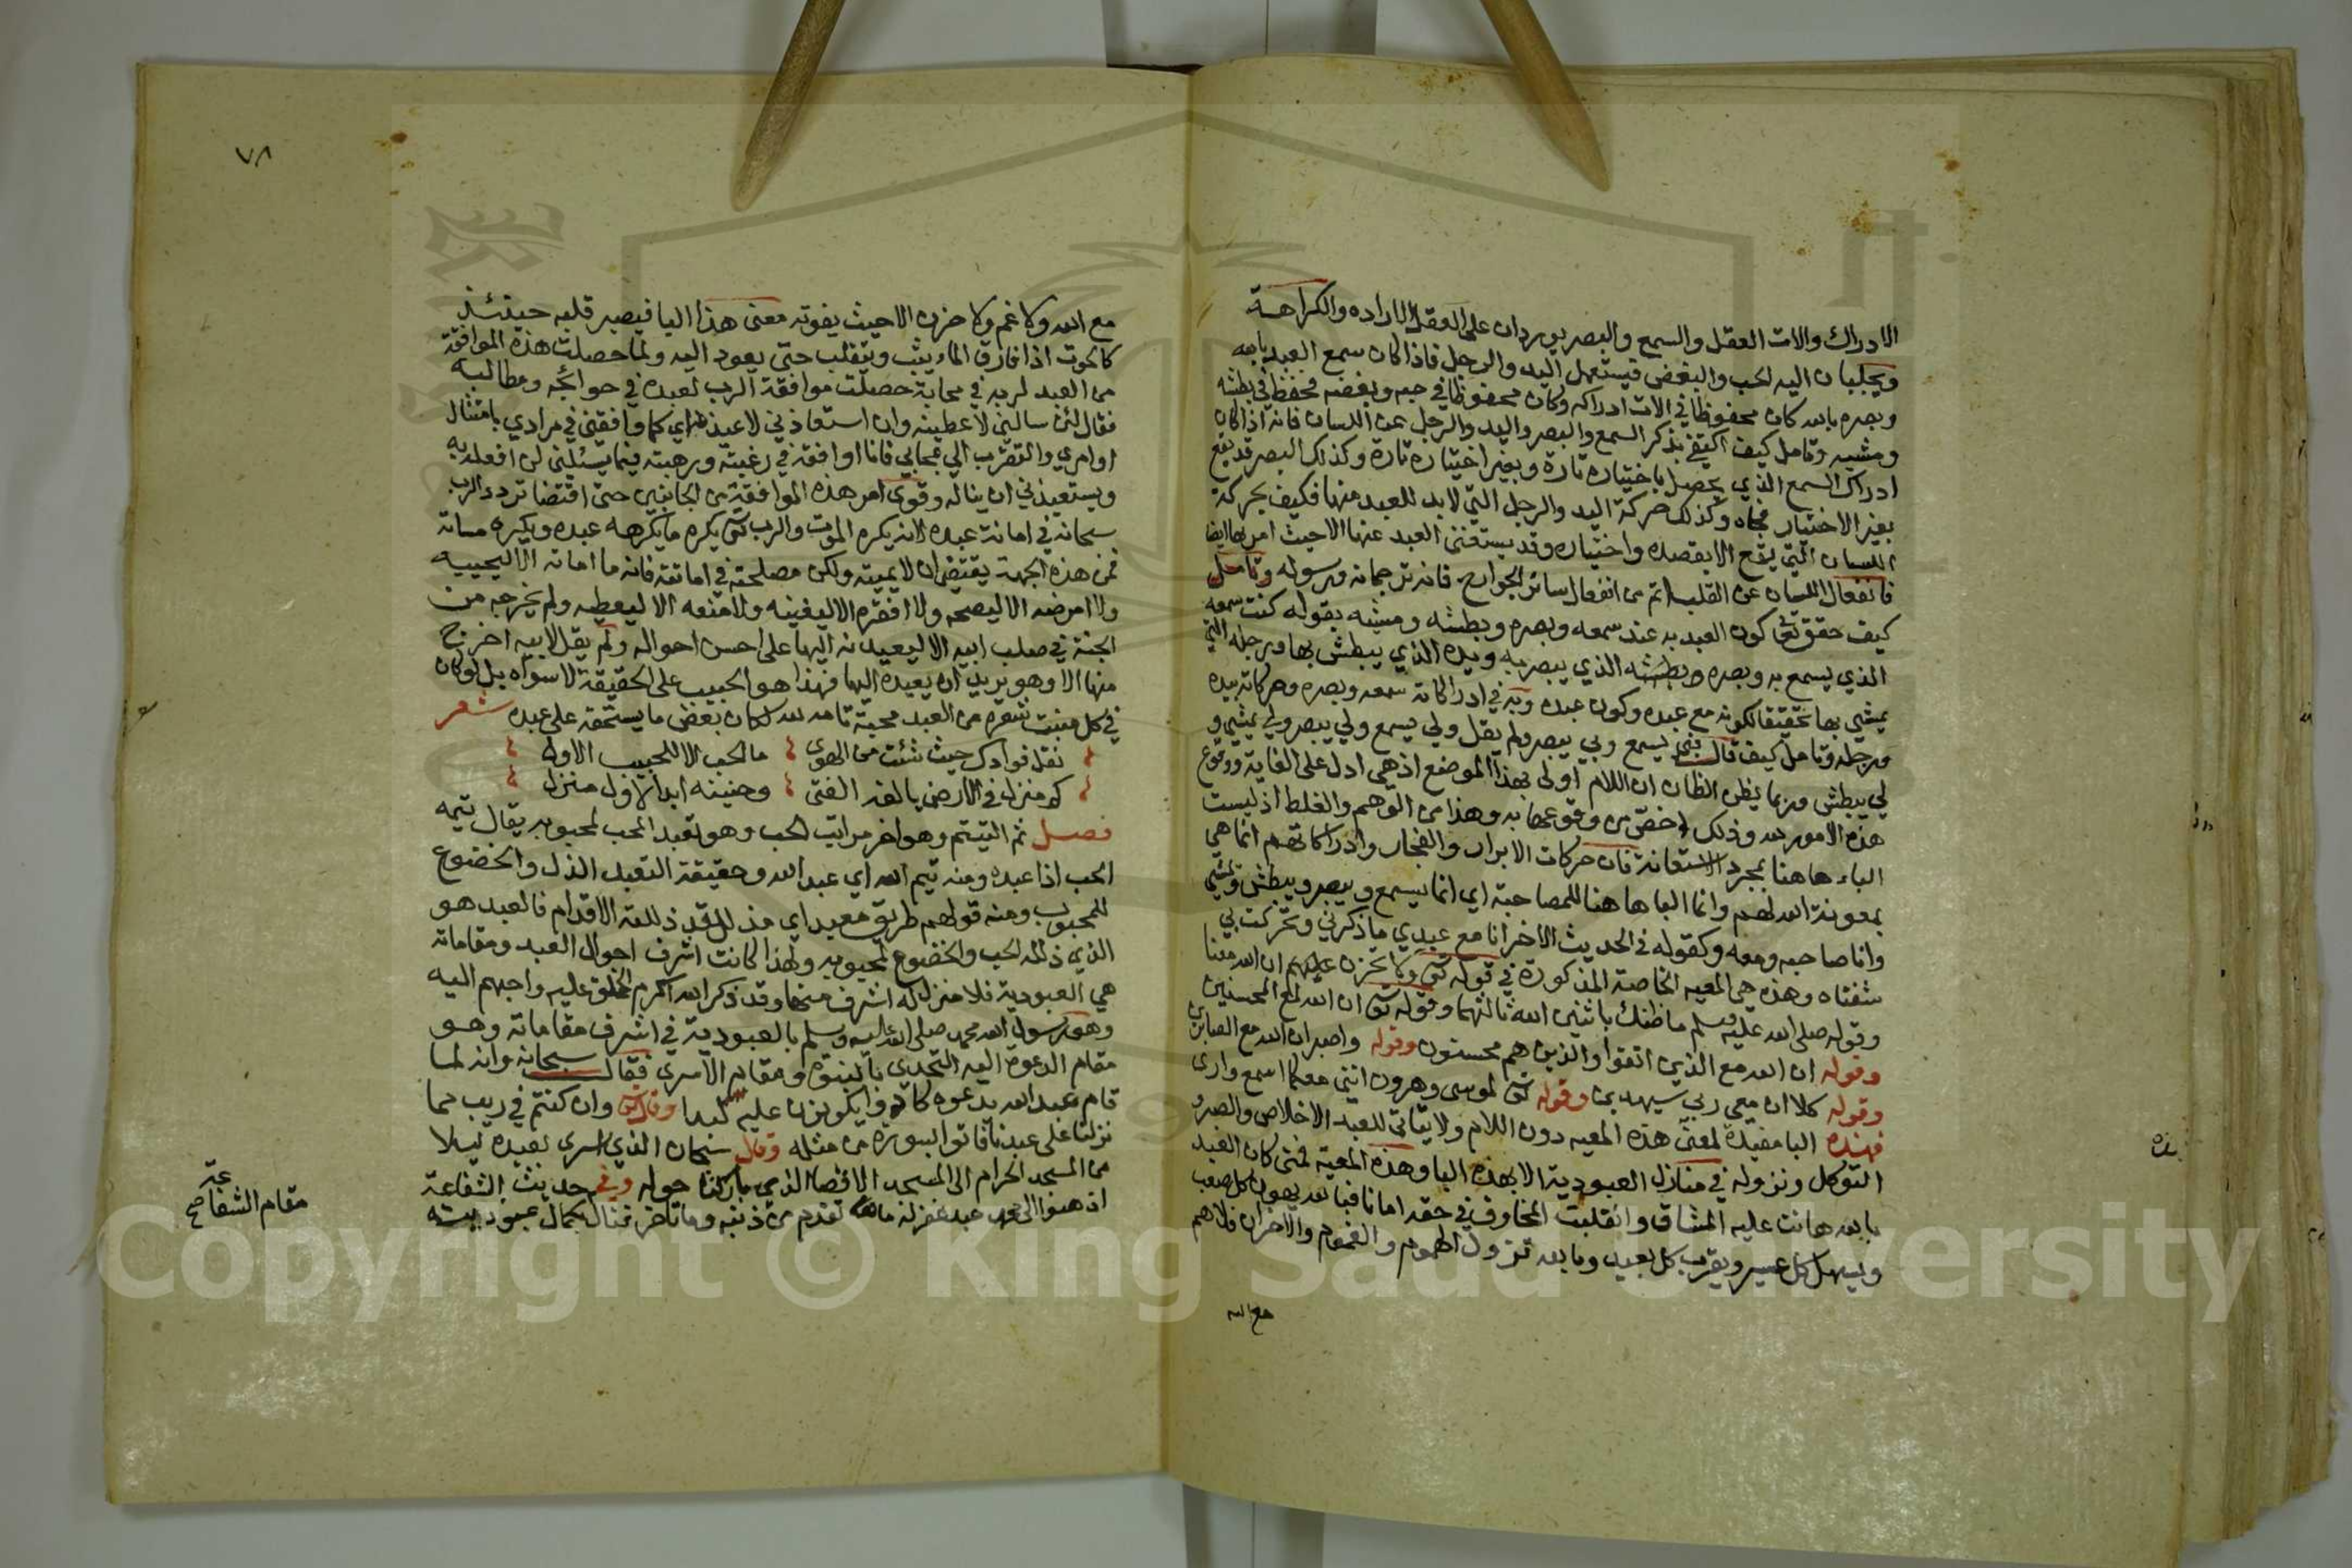 الادراك والات العقل والسمع والبصر يوردان على العقل الاراده والكراهة
ويجلبان اليه الحب والبغض فيستعمل اليد والرجل فاذا كان سمع العبد بالله
وبصره بالله كان محفوظا في الات ادراكه وكان محفوظا في حبه وبغضه فحفظ في بطشه
ومشيه وتامل كيف اكتفى بذكر السمع والبصر واليد والرجل عن اللسان فانه اذا كان
ادراك السمع الذي يحصل باختياره تارة وبغير اختياره تارة وكذلك البصر قد يقع
بغير الاختيار فجاه وكذلك حركة اليد والرجل التي لابد للعبد منها فكيف بحركة
اللسان التي لا يقع الا بقصده واختياره وقد يستغني العبد عنها الا حيث امر بها ايضا
فانفعال اللسان عن القلب اتم من انفعال سائر الجوارح فانه ترجمانه ورسوله وتامل
كيف حقق تعالى كون العبد به عند سمعه وبصره وبطشه ومشيه بقوله كنت سمعه
الذي يسمع به وبصره الذي يبصر به ويده الذي يبطش بها ورجله التي
يمشي بها تحقيقا لكونه مع عبده وكون عبده به في ادراكاته سمعه وبصره وحركاته بيده
ورجله وتامل كيف قال بي يسمع وبي يبصر ولم يقل ولي يسمع ولي يبصر ولي يمشي و
لي يبطش وربما يظن الظان ان اللام اولى بهذا الموضع اذ هي ادل على الغاية ووقوع
هذه الامور لله وذلك اخص من وقوعها به وهذا من الوهم والغلط اذ ليست
الباء هاهنا بمجرد الاستعانة فان حركات الابرار والفجار وادراكاتهم انما هي
بمعونة الله لهم وانما البا هاهنا للمصاحبة اي انما يسمع ويبصر ويبطش ويمشي
وانا صاحبه ومعه وكقوله في الحديث الاخر انا مع عبدي ما ذكرني وتحركت بي
شفتاه وهذه هي المعيه الخاصة المذكورة في قوله تعالى ولا تحزن عليهم ان الله معنا
وقوله صلى الله عليه وسلم ما ظنك باثنين الله ثالثهما وقوله تعالى ان الله لمع المحسنين
وقوله ان الله مع الذين اتقوا والذين هم محسنون وقوله واصبر ان الله مع الصابرين
وقوله كلا ان معي ربي سيهدين وقوله تعالى لموسى وهرون انني معكما اسمع وارى
فهذه البا مفيدة لمعنى هذه المعيه دون اللام ولا يتاتى للعبد الاخلاص والصبر و
التوكل ونزوله في منازل العبودية الا بهذه البا وهذه المعية فمتى كان العبد
بالله هانت عليه المشاق وانقلبت المخاوف في حقه امانا فبالله يهون كل صعب
ويسهل كل عسير ويقرب كل بعيد وبالله تزول الهموم والغموم والاحزان فلا هم
مع الله
٧٨
مع الله ولا غم ولا حزن الا حيث يفوته معنى هذا اليا فيصير قلبه حينئذ
كالحوت اذا فارق الماء يثب ويتقلب حتى يعود اليه ولما حصلت هذه الموافقة
من العبد لربه في محابة حصلت موافقة الرب لعبده في حوائجه ومطالبه
فقال لئن سالني لاعطينه وان استعاذني لاعيذنه اي كما وافقني في مرادي بامتثال
اوامري والتقرب الي بمحابي فانا اوافقه في رغبته ورهبته فيما يسئلني لن افعله به
ويستعيذني ان يناله وقوى امر هذه الموافقة من الجانبين حتى اقتضا تردد الرب
سبحانه في اماتة عبده لانه يكره الموت والرب تعالى يكره ما يكرهه عبده ويكره مساته
فمن هذه الجهة يقتضي ان لا يميته ولكن مصلحته في اماتته فانه ما اماته الا ليحييه
ولا امرضه الا ليصحه ولا افقره الا ليغنيه ولا منعه الا ليعطيه ولم يخرجه من
الجنة في صلب ابيه الا ليعيدنه اليها على احسن احواله ولم يقل لابيه اخرج
منها الا وهو يريد ان يعيده اليها فهذا هو الحبيب على الحقيقة لا سواه بل لو كان
في كل منبت شعرة من العبد محبة تامه لله لكان بعض ما يستحقه على عبده شعر
نقل فوادك حيث شئت من الهوى ما الحب الا للحبيب الاول
كم منزل في الارض يالفه الفتى وحنينه ابدا لاول منزل
فصل ثم التيتم وهو اخر مراتب الحب وهو تعبد المحب لمحبوبه يقال تيمه
الحب اذا عبده ومنه تيم الله اي عبد الله وحقيقة التعبد الذل والخضوع
للمحبوب ومنه قولهم طريق معبد اي مذلل قد ذللته الاقدام فالعبد هو
الذي ذلله الحب والخضوع لمحبوبه ولهذا كانت اشرف احوال العبد ومقاماته
هي العبودية فلا منزل له اشرف منها وقد ذكر الله اكرم الخلق عليه واحبهم اليه
وهو رسول الله محمد صلى الله عليه وسلم بالعبودية في اشرف مقاماته وهو
مقام الدعوة اليه التحدي بالنبوة ومقام الاسرى فقال سبحانه وانه لما
قام عبد الله يدعوه كادوا يكونون عليه لبدا وقال تعالى وان كنتم في ريب مما
نزلنا على عبدنا فاتوا بسورة من مثله وقال سبحان الذي اسرى بعبده ليلا
من المسجد الحرام الى المسجد الاقصا الذي باركنا حوله وفي حديث الشفاعة
اذهبوا الى محمد عبد غفر له ما تقدم من ذنبه وما تاخر فنال بكمال عبوديته
مقام الشفاعة